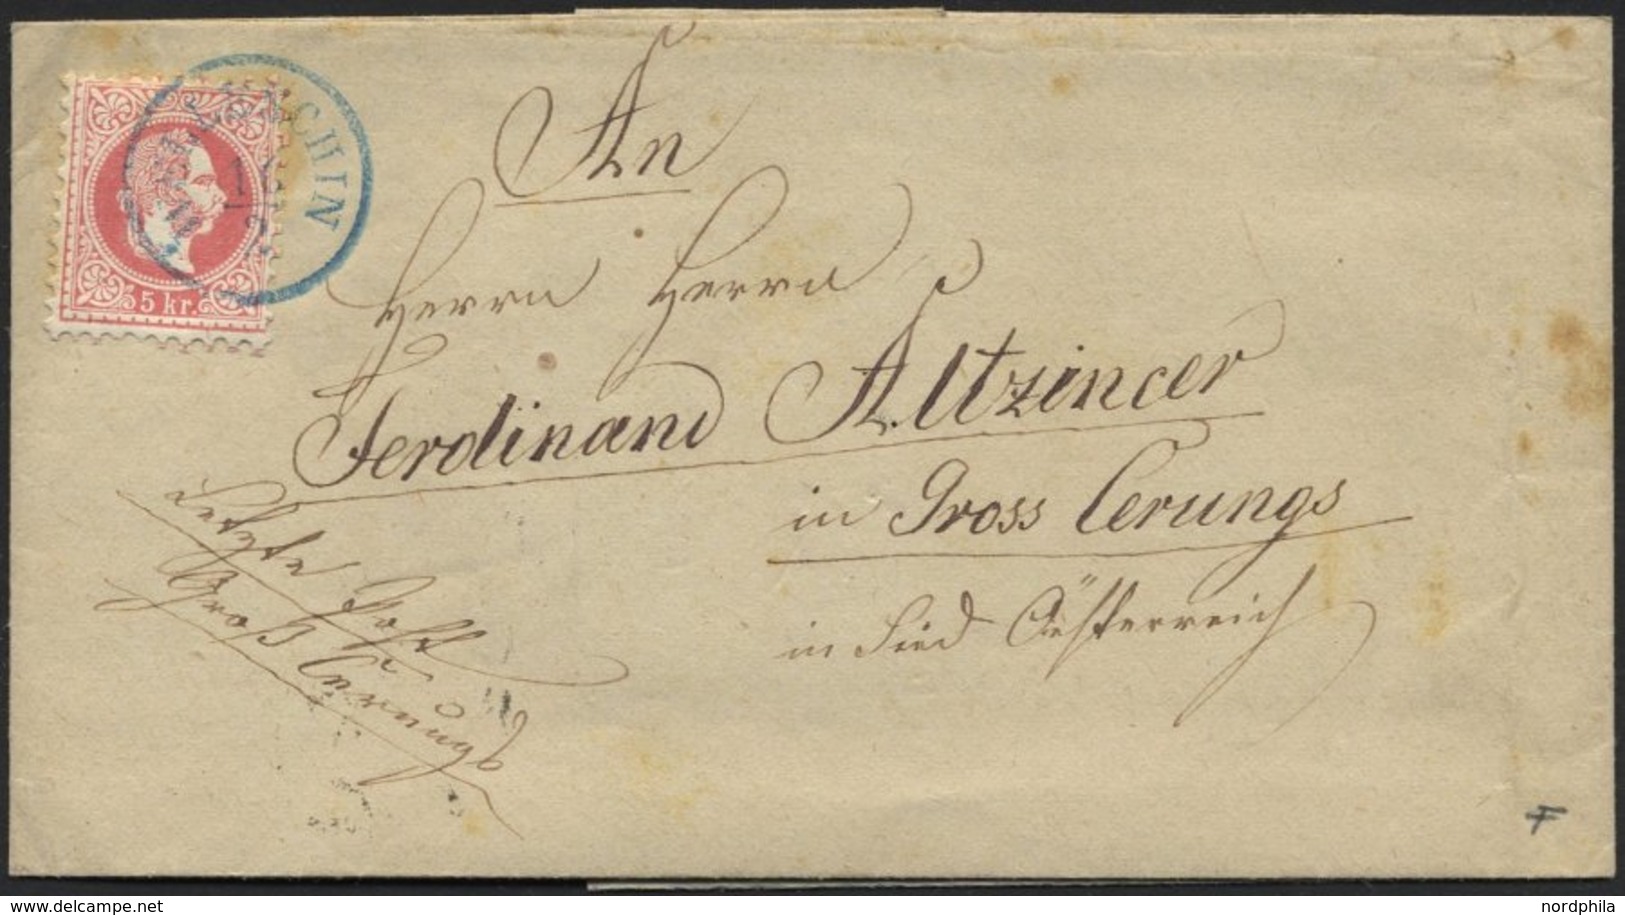 An
Herrn Herrn
Ferdinand Altzincer
in Gross Cerungs
in Sied Oesterreich
Letzte Post
Groß Cerungs
5 kr.
F
www.delcampe.net
nordphila